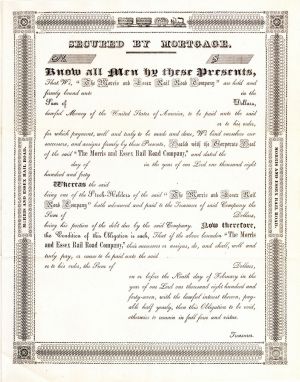 BOND
SECURED BY MORTGAGE.
No. $
Know all Men by these Presents,
That We, "The Morris and Essex Rail Road Company" are held and
firmly bound unto
in the
Sum of Dollars,
lawful Money of the United States of America, to be paid unto the said
or to his order,
for which payment, well and truly to be made and done, We bind ourselves our
successors, and assigns firmly by these Presents, Sealed with the Corporate Seal
of the said "The Morris and Essex Rail Road Company," and dated the
day of in the year of our Lord one thousand eight
hundred and forty
Whereas the said
being one of the Stock-Holders of the "The Morris and Essex Rail
Road Company" hath advanced and paid to the Treasurer of said Company the
Sum of Dollars,
being his portion of the debt due by the said Company. Now therefore,
the Condition of this Obligation is such, That if the above bounden "The Morris
and Essex Rail Road Company," their successors or assigns, do and shall, well and
truly pay, or cause to be paid unto the said
or to his order, the Sum of Dollars,
on or before the Ninth day of February in the
year of our Lord one thousand eight hundred and
forty-seven, with the lawful interest thereon, payable
half yearly, then this Obligation to be void,
otherwise to remain in full force and virtue.
Treasurer.
MORRIS AND ESSEX RAIL ROAD.
MORRIS AND ESSEX RAIL ROAD.